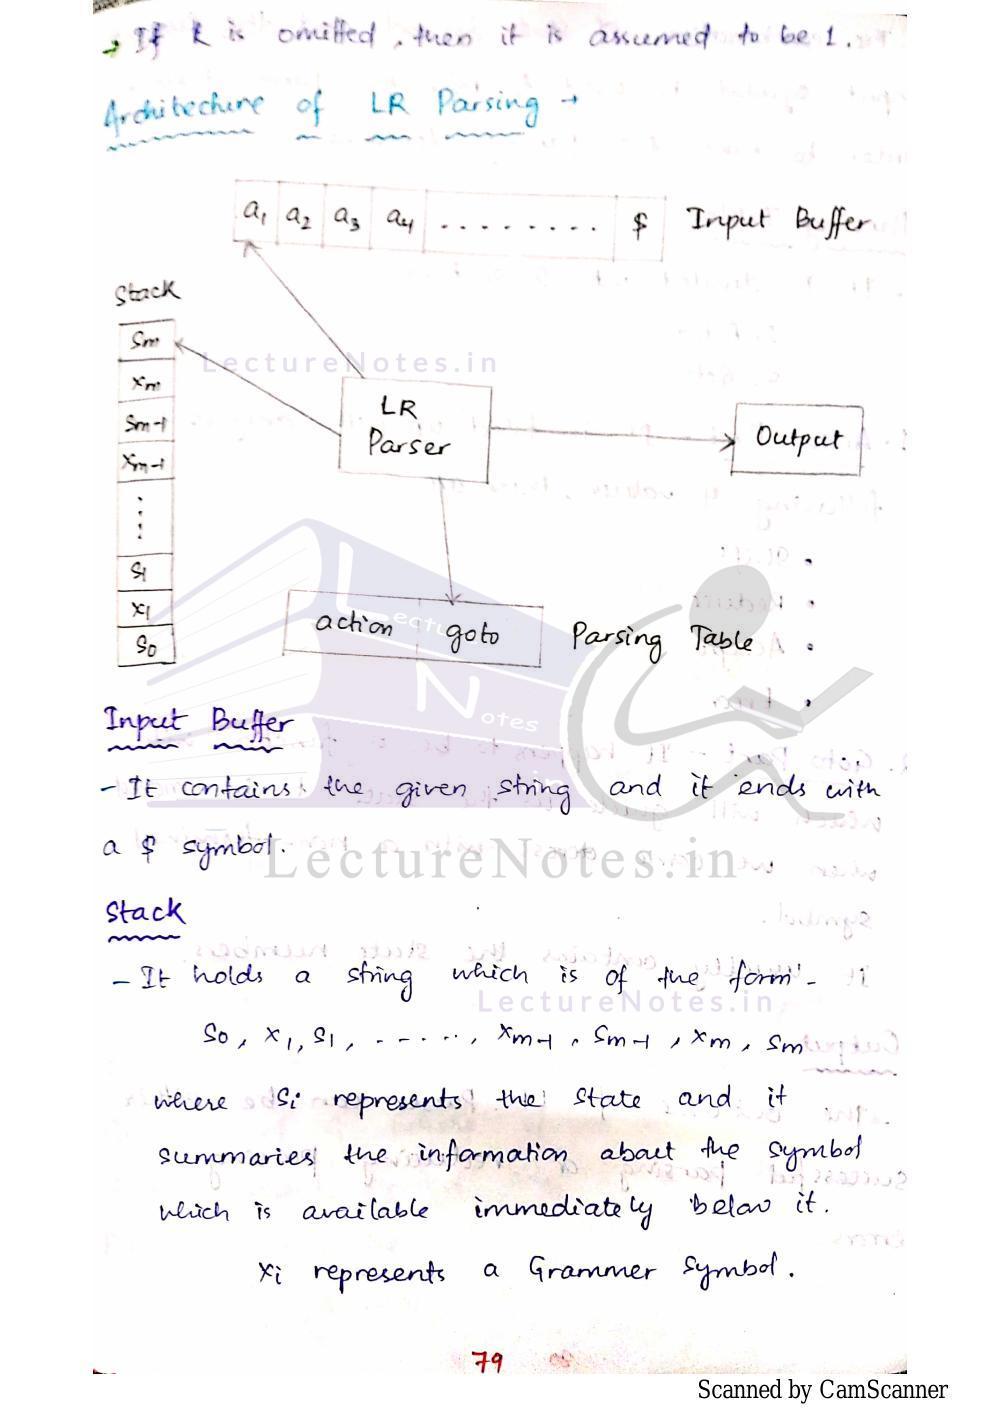 → If k is omitted, then it is assumed to be 1.
Architechure of LR Parsing →
a1 a2 a3 a4 ......... $ Input Buffer
Stack
Sm
LectureNotes.in
Xm
LR
Parser
Sm-1
Output
Xm-1
S1
X1
action goto Parsing Table
S0
Lecture
Notes
.in
Input Buffer
- It contains the given string and it ends with
a $ symbol.
LectureNotes.in
Stack
- It holds a string which is of the form -
LectureNotes.in
S0, X1, S1, ------, Xm-1, Sm-1, Xm, Sm
where Si represents the state and it
summaries the information about the symbol
which is available immediately below it.
Xi represents a Grammer Symbol.
79
Scanned by CamScanner